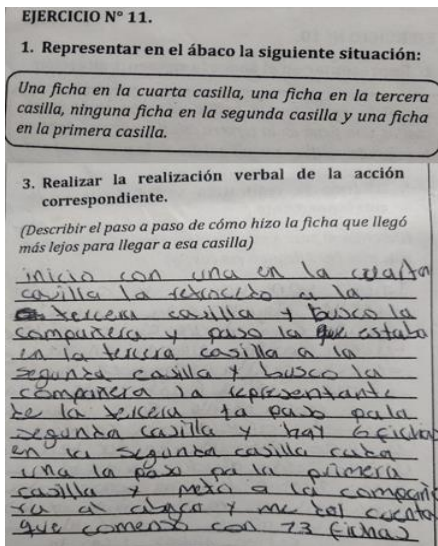 EJERCICIO N° 11.
1. Representar en el ábaco la siguiente situación:
Una ficha en la cuarta casilla, una ficha en la tercera
casilla, ninguna ficha en la segunda casilla y una ficha
en la primera casilla.
3. Realizar la realización verbal de la acción
correspondiente.
(Describir el paso a paso de cómo hizo la ficha que llegó
más lejos para llegar a esa casilla)
inicio con una en la cuarta
casilla la retrocedo a la
tercera casilla y busco la
compañera y paso la que estaba
en la tercera casilla a la
segunda casilla y busco la
compañera la representante
de la tercera la paso pala
segunda casilla y hay 6 fichas
en la segunda casilla cada
una la paso pa la primera
casilla y meto a la compañe
ra al abaco y me doy cuenta
que comenzo con 23 fichas